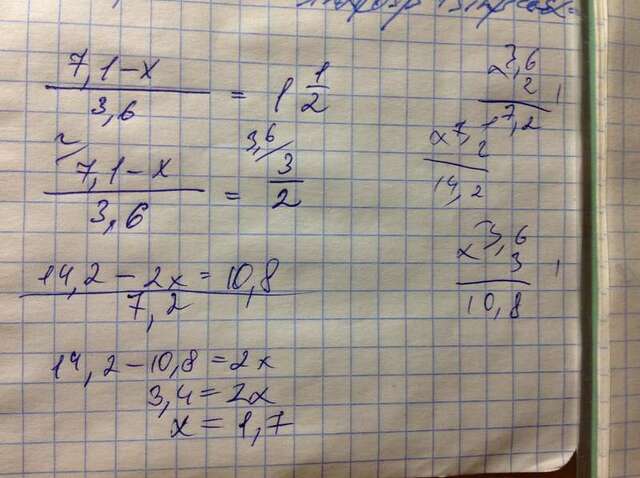 7,1-x / 3,6 = 1 1/2
2/ 7,1-x / 3,6 = 3,6/ 3 / 2
14,2-2x=10,8 / 7,2
14,2-10,8=2x
3,4=2x
x=1,7
x 3,6
2
7,2
x 7,1
2
14,2
x 3,6
3
10,8